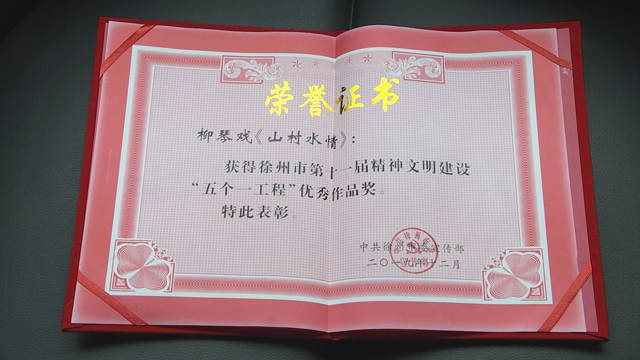 荣誉证书
柳琴戏《山村水情》：
获得徐州市第十一届精神文明建设
“五个一工程”优秀作品奖。
特此表彰。
中共徐州市委宣传部
二〇一九年十二月